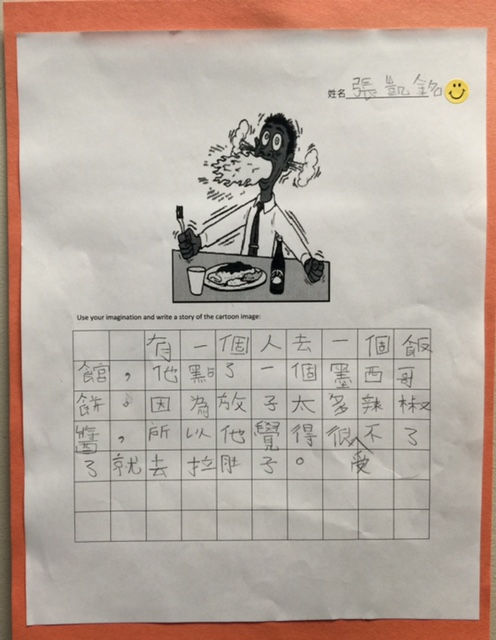 姓名 張凱銘
Use your imagination and write a story of the cartoon image:
有一個人去一個飯
館,他點了一個墨西哥
餅。因為放子太多辣椒
醬,所以他覺得很受不了
了就去拉肚子。